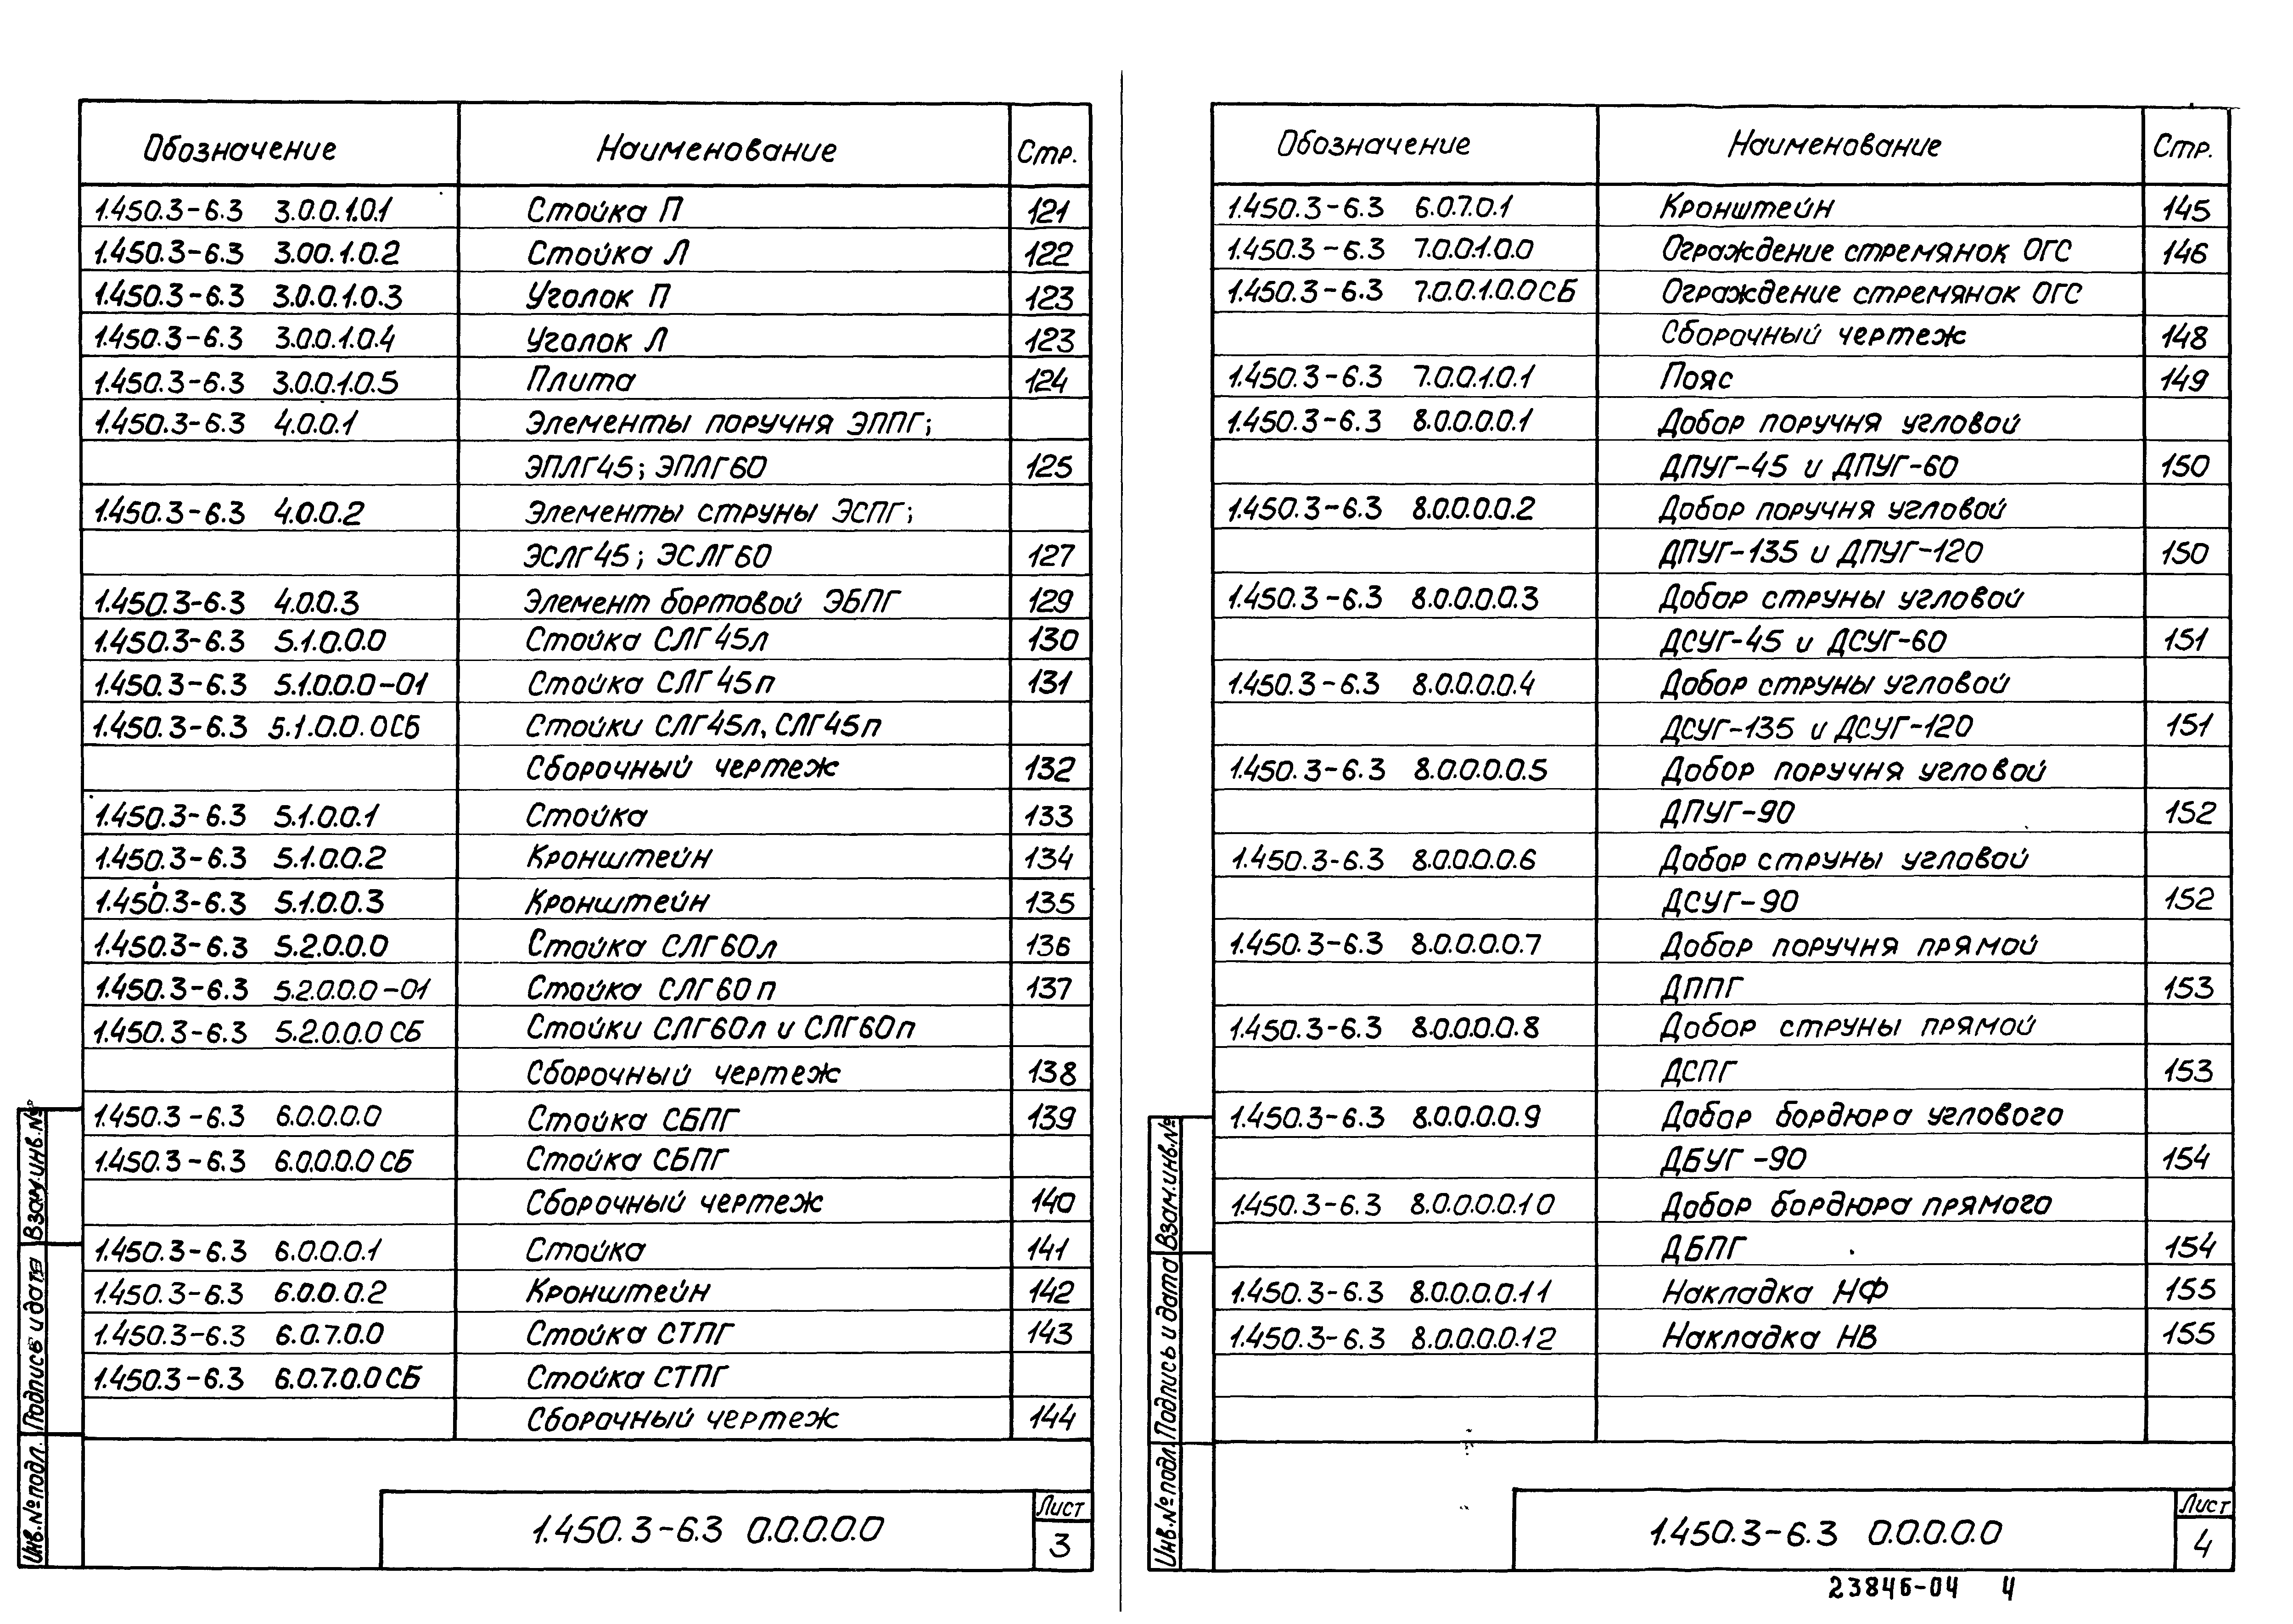 Обозначение Наименование Стр.
1.450.3-6.3 3.0.0.1.0.1 Стойка П 121
1.450.3-6.3 3.00.1.0.2 Стойка Л 122
1.450.3-6.3 3.0.0.1.0.3 Уголок П 123
1.450.3-6.3 3.0.0.1.0.4 Уголок Л 123
1.450.3-6.3 3.0.0.1.0.5 Плита 124
1.450.3-6.3 4.0.0.1 Элементы поручня ЭППГ;
ЭПЛГ45; ЭПЛГ60 125
1.450.3-6.3 4.0.0.2 Элементы струны ЭСПГ;
ЭСЛГ45; ЭСЛГ60 127
1.450.3-6.3 4.0.0.3 Элемент бортовой ЭБПГ 129
1.450.3-6.3 5.1.0.0.0 Стойка СЛГ45л 130
1.450.3-6.3 5.1.0.0.0-01 Стойка СЛГ45п 131
1.450.3-6.3 5.1.0.0.0СБ Стойки СЛГ45л, СЛГ45п
Сборочный чертеж 132
1.450.3-6.3 5.1.0.0.1 Стойка 133
1.450.3-6.3 5.1.0.0.2 Кронштейн 134
1.450.3-6.3 5.1.0.0.3 Кронштейн 135
1.450.3-6.3 5.2.0.0.0 Стойка СЛГ60л 136
1.450.3-6.3 5.2.0.0.0-01 Стойка СЛГ60п 137
1.450.3-6.3 5.2.0.0.0СБ Стойки СЛГ60л и СЛГ60п
Сборочный чертеж 138
1.450.3-6.3 6.0.0.0.0 Стойка СБПГ 139
1.450.3-6.3 6.0.0.0.0СБ Стойка СБПГ
Сборочный чертеж 140
1.450.3-6.3 6.0.0.0.1 Стойка 141
1.450.3-6.3 6.0.0.0.2 Кронштейн 142
1.450.3-6.3 6.0.7.0.0 Стойка СТПГ 143
1.450.3-6.3 6.0.7.0.0СБ Стойка СТПГ
Сборочный чертеж 144
Взам.инв.№
Подпись и дата
Инв.№подл.
1.450.3-6.3 0.0.0.0.0
Лист
3
Обозначение Наименование Стр.
1.450.3-6.3 6.0.7.0.1 Кронштейн 145
1.450.3-6.3 7.0.0.1.0.0 Ограждение стремянок ОГС 146
1.450.3-6.3 7.0.0.1.0.0СБ Ограждение стремянок ОГС
Сборочный чертеж 148
1.450.3-6.3 7.0.0.1.0.1 Пояс 149
1.450.3-6.3 8.0.0.0.0.1 Добор поручня угловой
ДПУГ-45 и ДПУГ-60 150
1.450.3-6.3 8.0.0.0.0.2 Добор поручня угловой
ДПУГ-135 и ДПУГ-120 150
1.450.3-6.3 8.0.0.0.0.3 Добор струны угловой
ДСУГ-45 и ДСУГ-60 151
1.450.3-6.3 8.0.0.0.0.4 Добор струны угловой
ДСУГ-135 и ДСУГ-120 151
1.450.3-6.3 8.0.0.0.0.5 Добор поручня угловой
ДПУГ-90 152
1.450.3-6.3 8.0.0.0.0.6 Добор струны угловой
ДСУГ-90 152
1.450.3-6.3 8.0.0.0.0.7 Добор поручня прямой
ДППГ 153
1.450.3-6.3 8.0.0.0.0.8 Добор струны прямой
ДСПГ 153
1.450.3-6.3 8.0.0.0.0.9 Добор бордюра углового
ДБУГ-90 154
1.450.3-6.3 8.0.0.0.0.10 Добор бордюра прямого
ДБПГ 154
1.450.3-6.3 8.0.0.0.0.11 Накладка НФ 155
1.450.3-6.3 8.0.0.0.0.12 Накладка НВ 155
Взам.инв.№
Подпись и дата
Инв.№подл.
1.450.3-6.3 0.0.0.0.0
Лист
4
23846-04 4